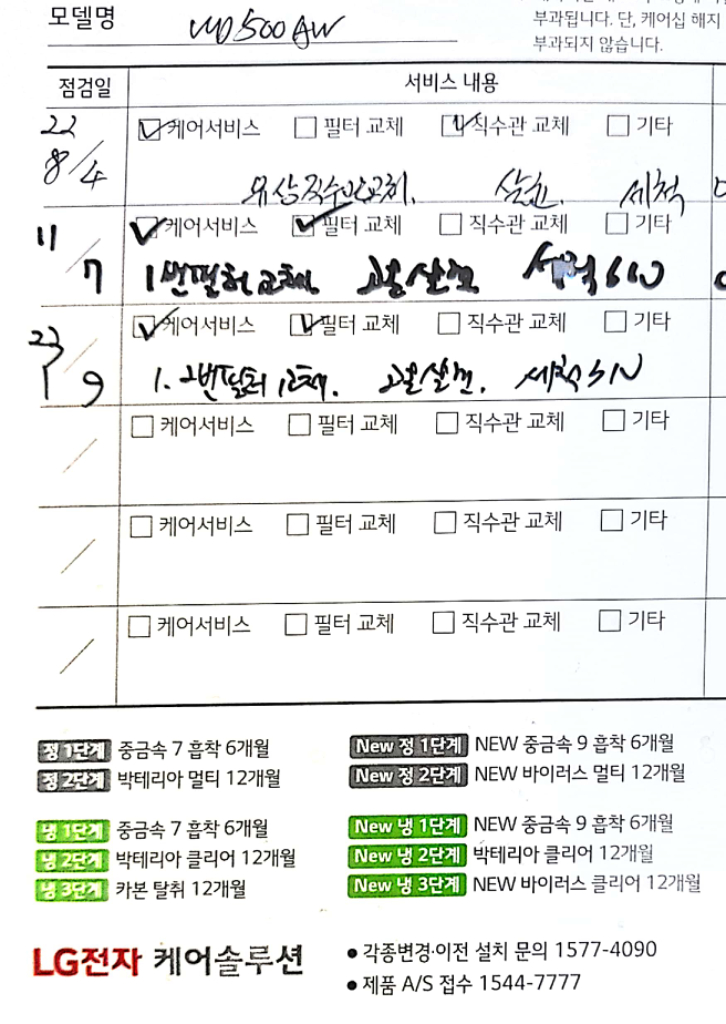 모델명 WD500AW
부과됩니다. 단, 케어십 해지
부과되지 않습니다.
점검일 서비스 내용
22 8/4 케어서비스 필터 교체 직수관 교체 기타
유상직수관교체. 살균. 세척
11/7 케어서비스 필터 교체 직수관 교체 기타
1번필터교체. 고온살균 세척
23 1/9 케어서비스 필터 교체 직수관 교체 기타
1. 2번필터 교체. 고온살균. 세척
/ 케어서비스 필터 교체 직수관 교체 기타
/ 케어서비스 필터 교체 직수관 교체 기타
/ 케어서비스 필터 교체 직수관 교체 기타
정 1단계 중금속 7 흡착 6개월
정 2단계 박테리아 멀티 12개월
New 정 1단계 NEW 중금속 9 흡착 6개월
New 정 2단계 NEW 바이러스 멀티 12개월
냉 1단계 중금속 7 흡착 6개월
냉 2단계 박테리아 클리어 12개월
냉 3단계 카본 탈취 12개월
New 냉 1단계 NEW 중금속 9 흡착 6개월
New 냉 2단계 박테리아 클리어 12개월
New 냉 3단계 NEW 바이러스 클리어 12개월
LG전자 케어솔루션
● 각종변경·이전 설치 문의 1577-4090
● 제품 A/S 접수 1544-7777